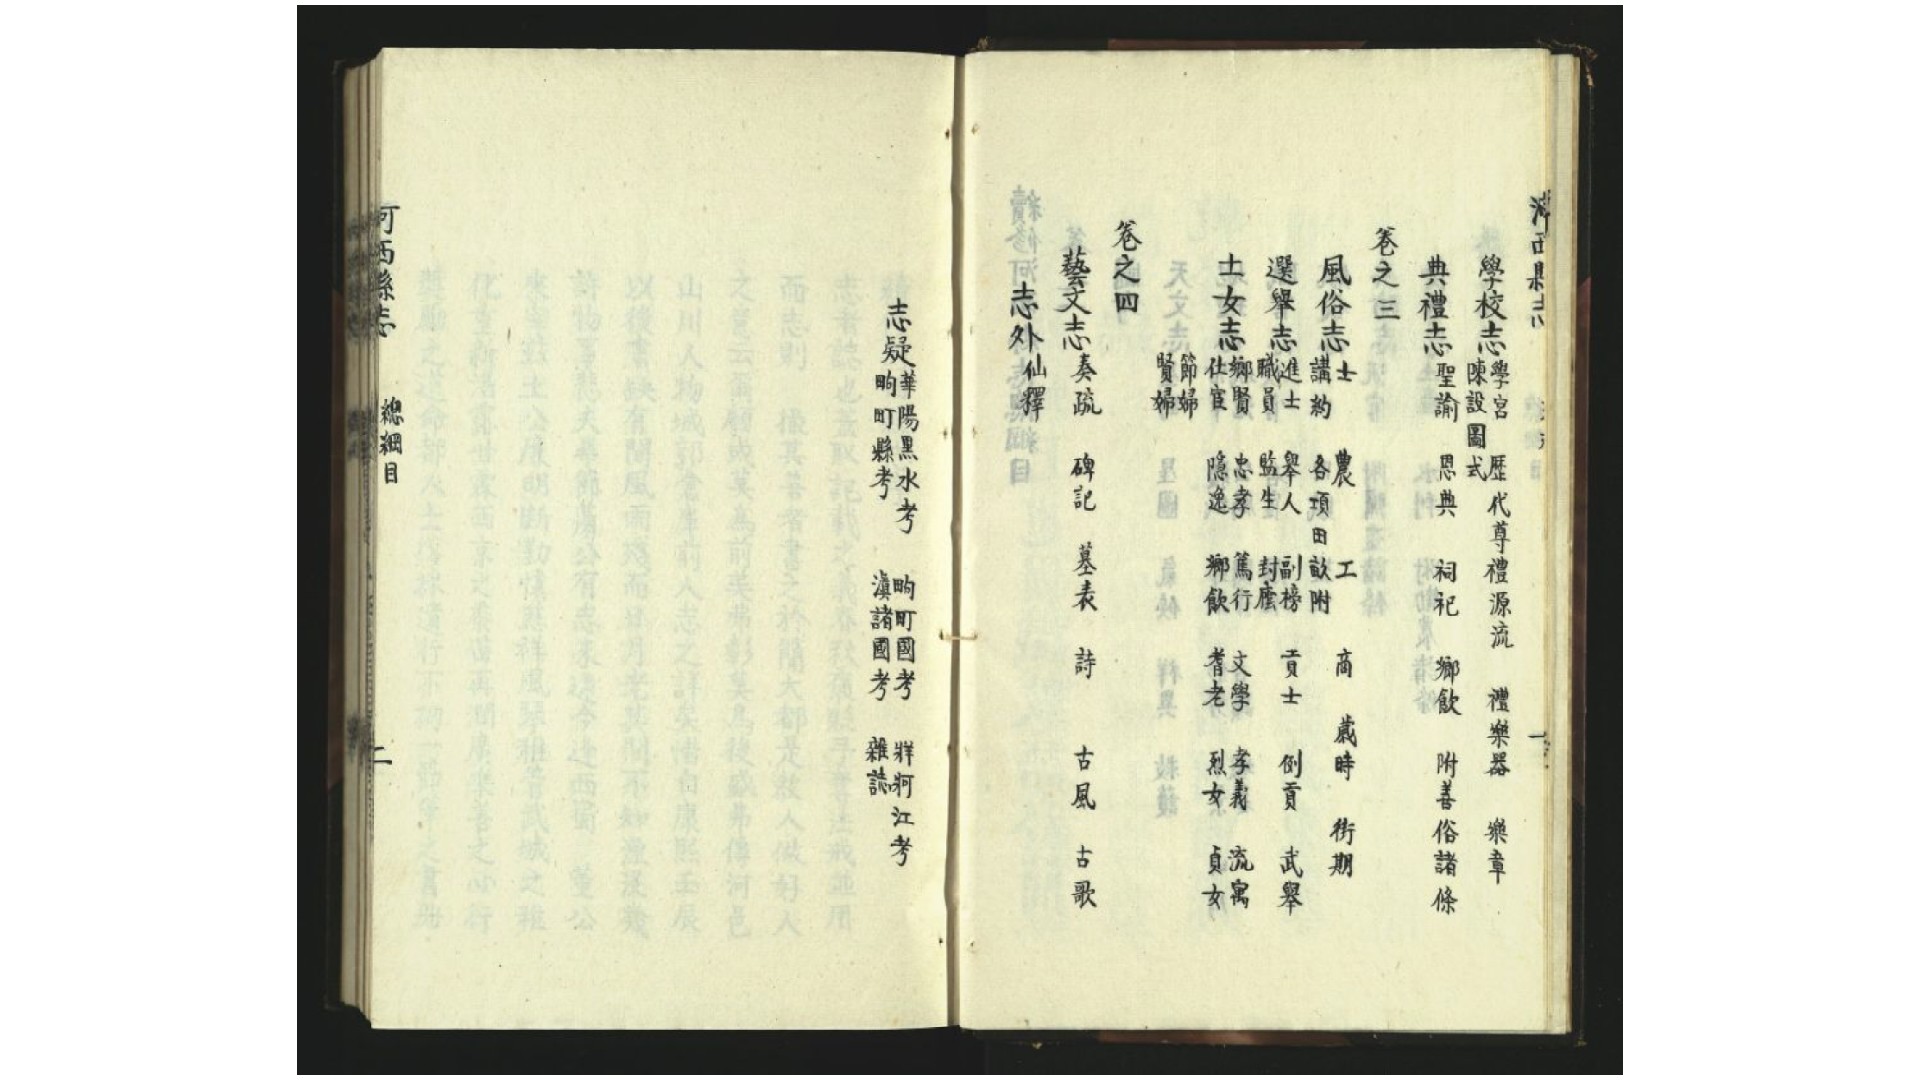 學校志 學宮 歷代尊禮源流 禮樂器 樂章
陳設圖式
典禮志 聖諭 恩典 祠祀 鄉飲 附善俗諸條
卷之三
風俗志 士 農 工 商 歲時 街期
講約 各項田畝附
選舉志 進士 舉人 副榜 貢士 例貢 武舉
職員 監生 封廕
士女志 鄉賢 忠孝 篤行 文學 孝義 流寓
仕宦 隱逸 鄉飲 耆老 烈女 貞女
節婦
賢婦
卷之四
藝文志 奏疏 碑記 墓表 詩 古風 古歌
志外 仙釋
志疑 華陽黑水考 畇町國考 牂牁江考
畇町縣考 滇諸國考 雜誌
河西縣志 總綱目 二